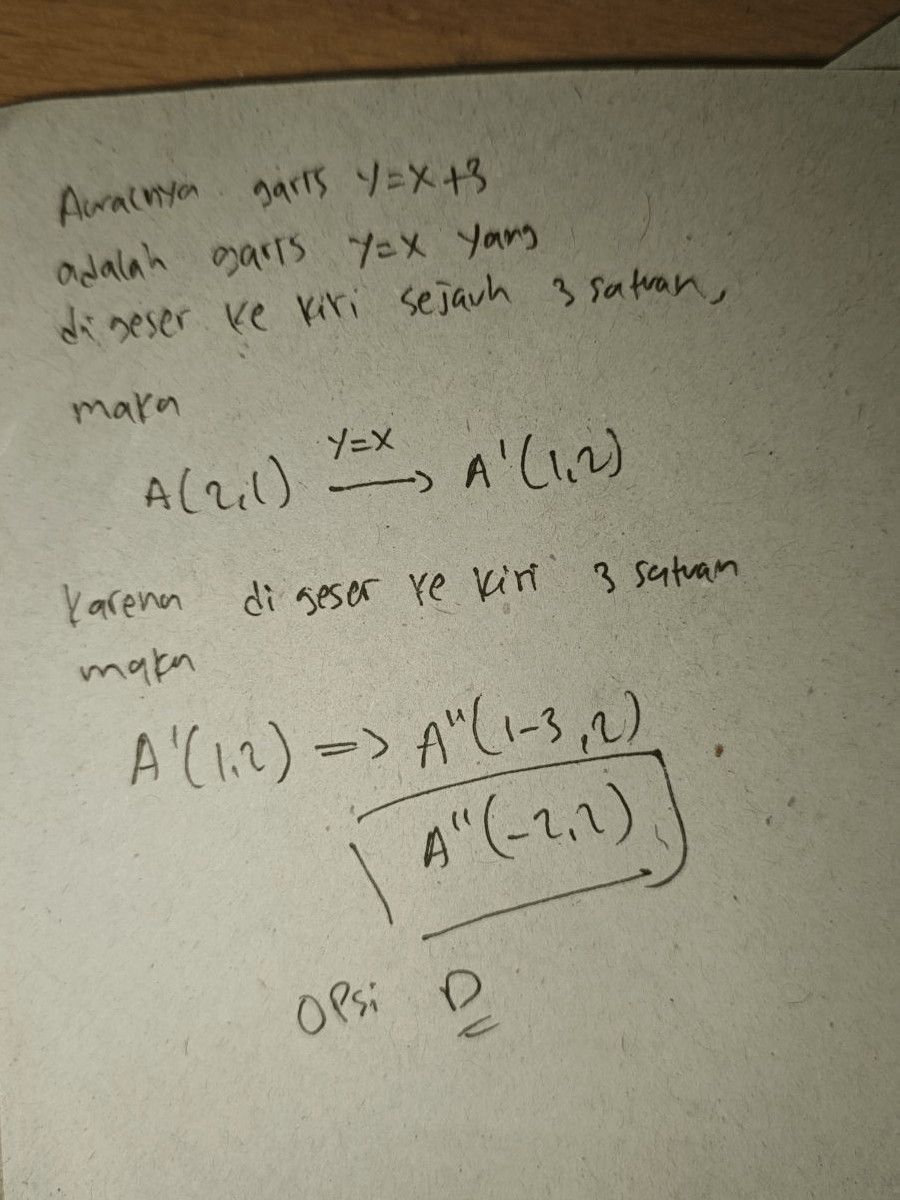 Awalnya garis y=x+3
adalah garis y=x yang
di geser ke kiri sejauh 3 satuan,
maka
y=x
A(2,1) → A'(1,2)
Karena di geser ke kiri 3 satuan
maka
A'(1,2) => A"(1-3,2)
A"(-2,2)
OPSi D